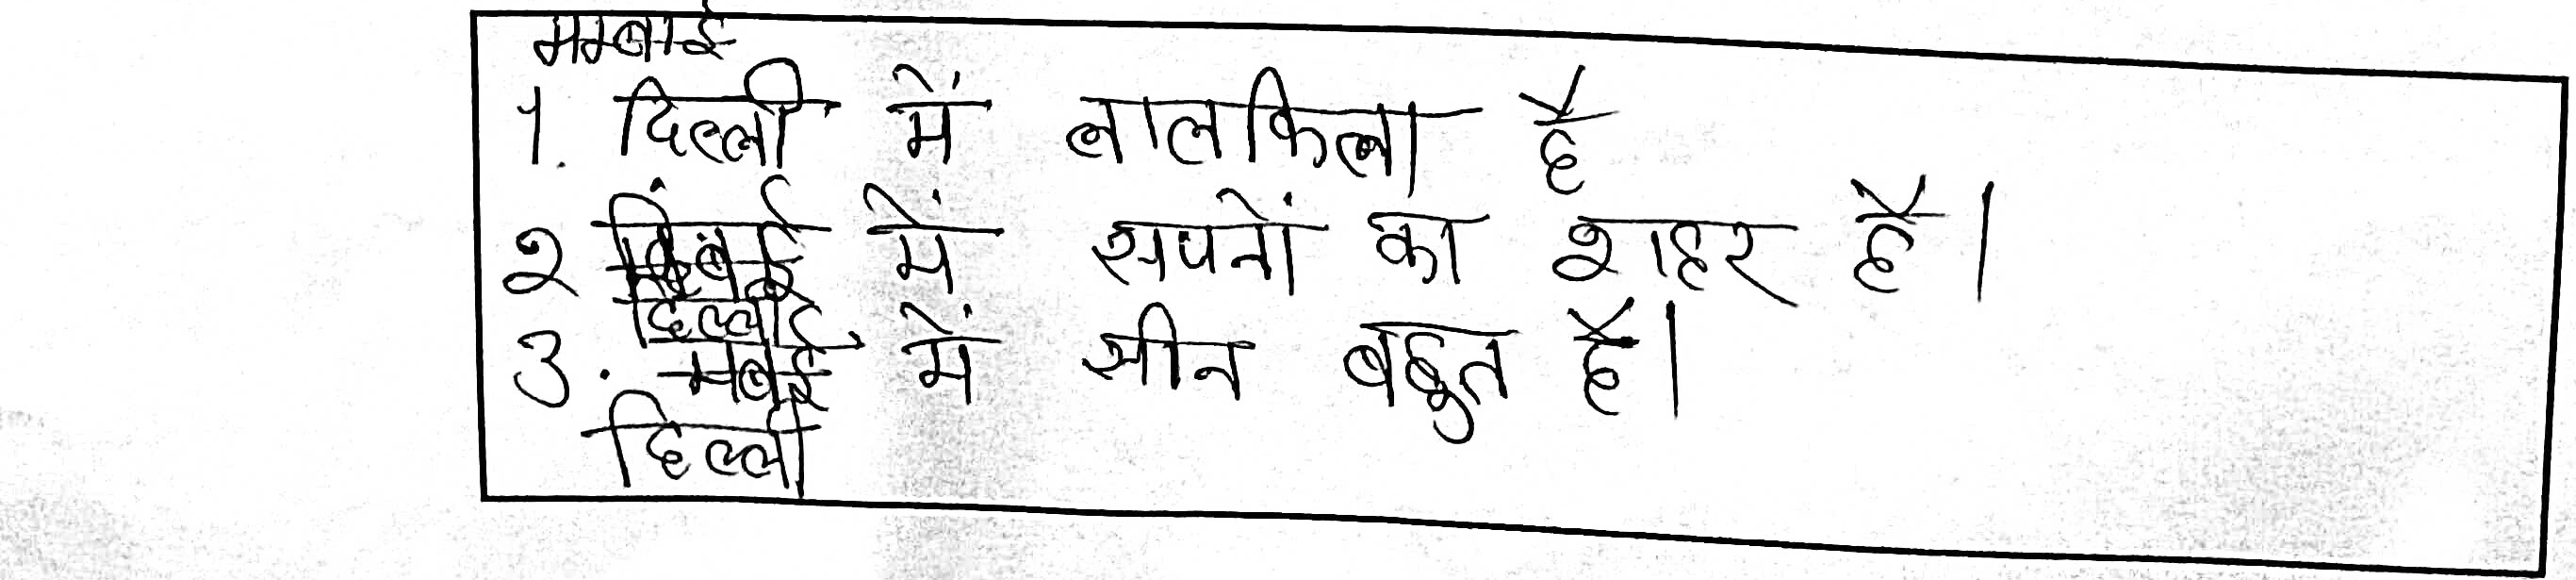 मम्बाई
1. दिल्ली में लालकिला है
२ में सपनों का शहर है।
दिल्ली
3. मबई में सीन बहुत है।
दिल्ली